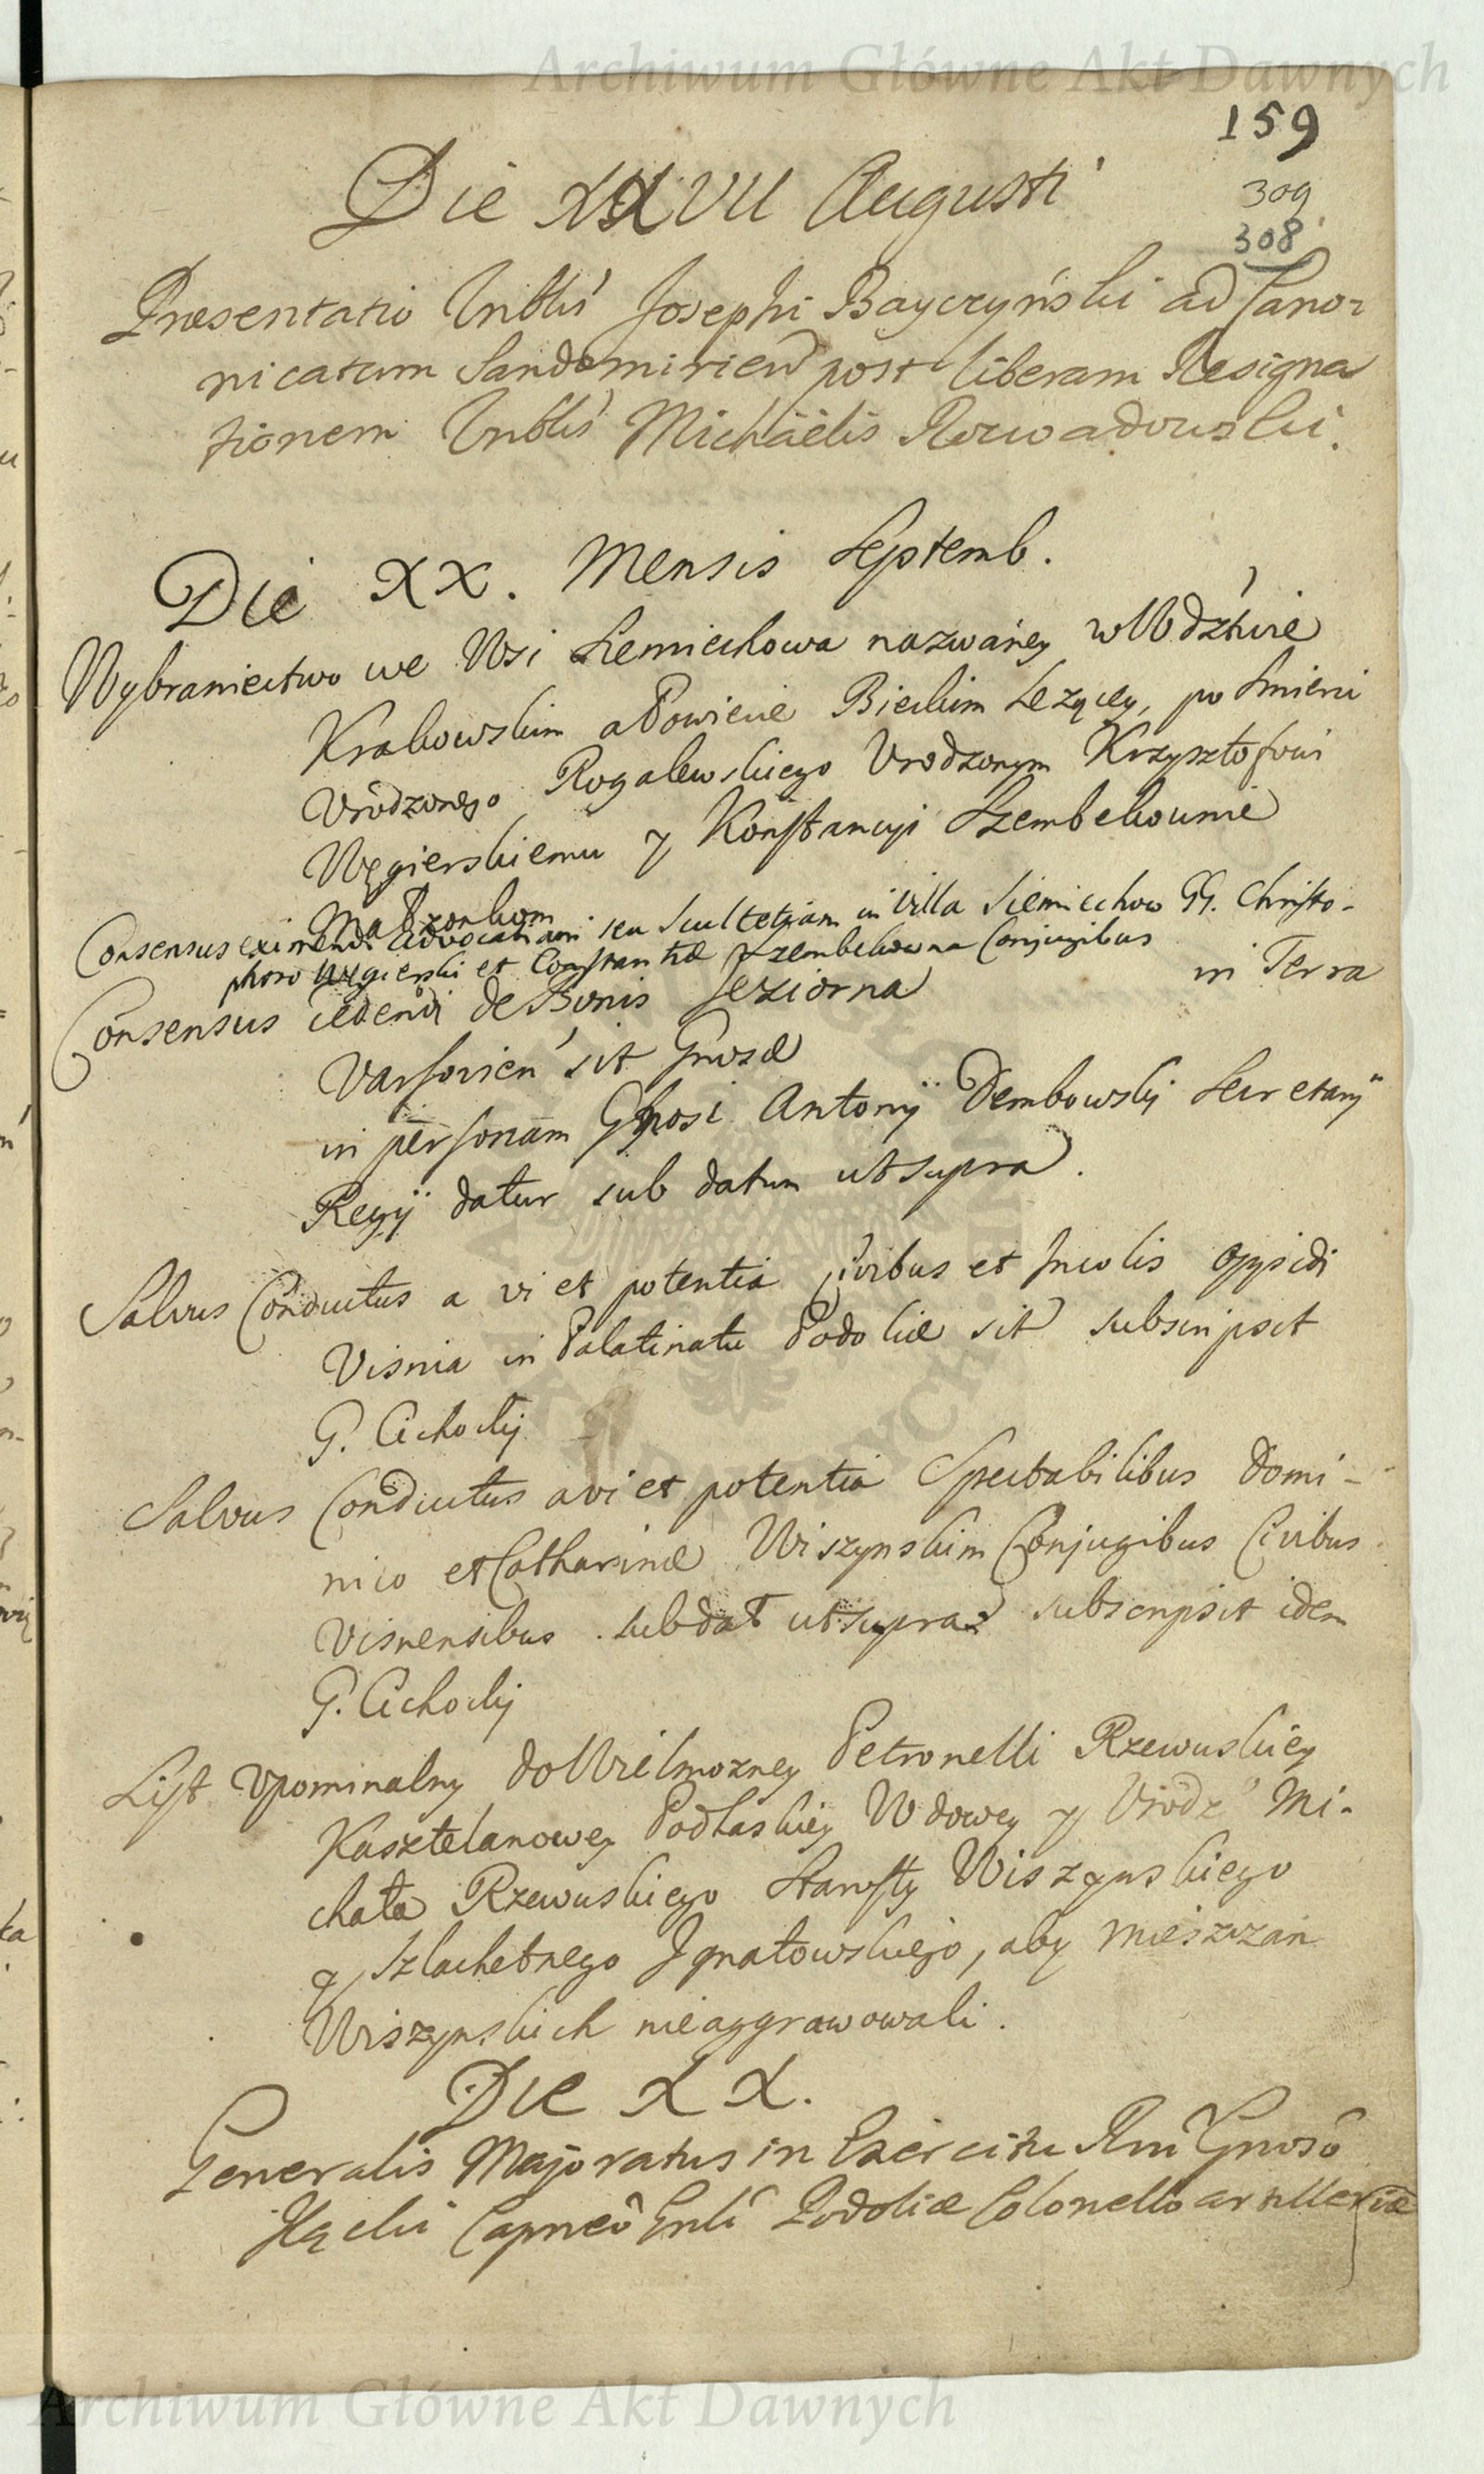 Archiwum Główne Akt Dawnych
159
309
308
Die XXVII Augusti
Præsentatio Vnblis Josephi Bayczyński ad Cano=
nicatum Sandomirien post liberam Resigna
tionem Vnblis Michaëlis Rozwadowski.
Die XX. Mensis Septemb.
Wybraniectwo we Wsi Siemiechowa nazwaney w Wdztwie
Krakowskim a Powiecie Bieckim Lezącey, po Smierci
Vrodzonego Rogalewskiego Vrodzonym Krzysztofowi
Węgierskiemu y Konstancyi Szembekownie
Małzonkom
Consensus eximendi Advocatiam seu Scultetiam in Villa Siemiechow GG. Christo-
phoro Węgierski et Constantiæ Szembekowna Conjugibus
Consensus cedendi de Bonis Jeziorna in Terra
Varsovien sit Gnosæ
in personam Gnosi Antonij Dembowskij Secretarij
Regij datur sub datum ut supra.
Salvus Conductus a vi et potentia Civibus et Incolis Oppidi
Visnia in Palatinatu Podoliæ sit subscripsit
G. Cichockij
Salvus Conductus a vi et potentia Spectabilibus Domi-
nico et Catharinæ Wiszynskim Conjugibus Civibus
Visnensibus sub dat ut supra subscripsit idem
G. Cichockij
List Vpominalny do Wielmozney Petronelli Rzewuskiey
Kasztelanowey Podlaskiey Wdowey y Vrodz Mi-
chała Rzewuskiego Starosty Wiszynskiego
y Szlachetnego Ignatowskiego, aby Mieszczan
Wiszynskich nie aggrawowali.
Die XX.
Generalis Majoratus in Exercitu Rni Gnoso
Capneo Gnli Podoliæ Colonello artilleriæ
Archiwum Główne Akt Dawnych